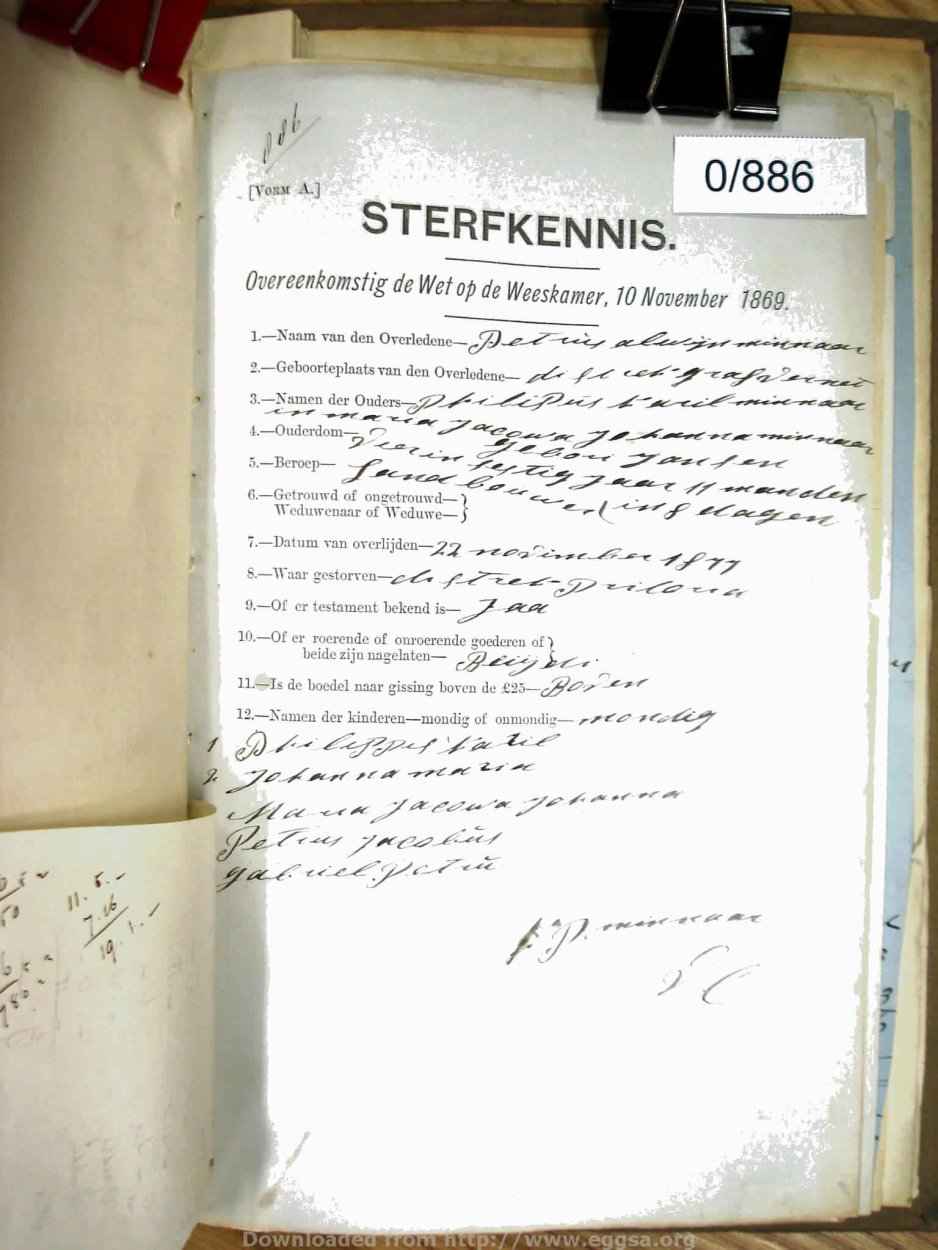 886
0/886
[VORM A.]
STERFKENNIS.
Overeenkomstig de Wet op de Weeskamer, 10 November 1869.
1.—Naam van den Overledene— Petrus alwijn minnaar
2.—Geboorteplaats van den Overledene— distrek grafrenet
3.—Namen der Ouders— Philippus karil minnaar
en maria Jacowa Johanna minnaar
4.—Ouderdom— gebori Jansen
Vier in sestig Jaar 11 manden
5.—Beroep— Landbouwer in 8 dagen
6.—Getrouwd of ongetrouwd—}
Weduwenaar of Weduwe—}
7.—Datum van overlijden— 22 november 1877
8.—Waar gestorven— distrek
9.—Of er testament bekend is— Jaa
10.—Of er roerende of onroerende goederen of}
beide zijn nagelaten—
11.—Is de boedel naar gissing boven de £25— Boven
12.—Namen der kinderen—mondig of onmondig— mondig
1 Philippus karil
2 Johanna maria
Maria Jacowa Johanna
Petrus Jacobus
gabriel Petru
P. minnaar
11. 5.-
7.16
19. 1.
Downloaded from http://www.eggsa.org